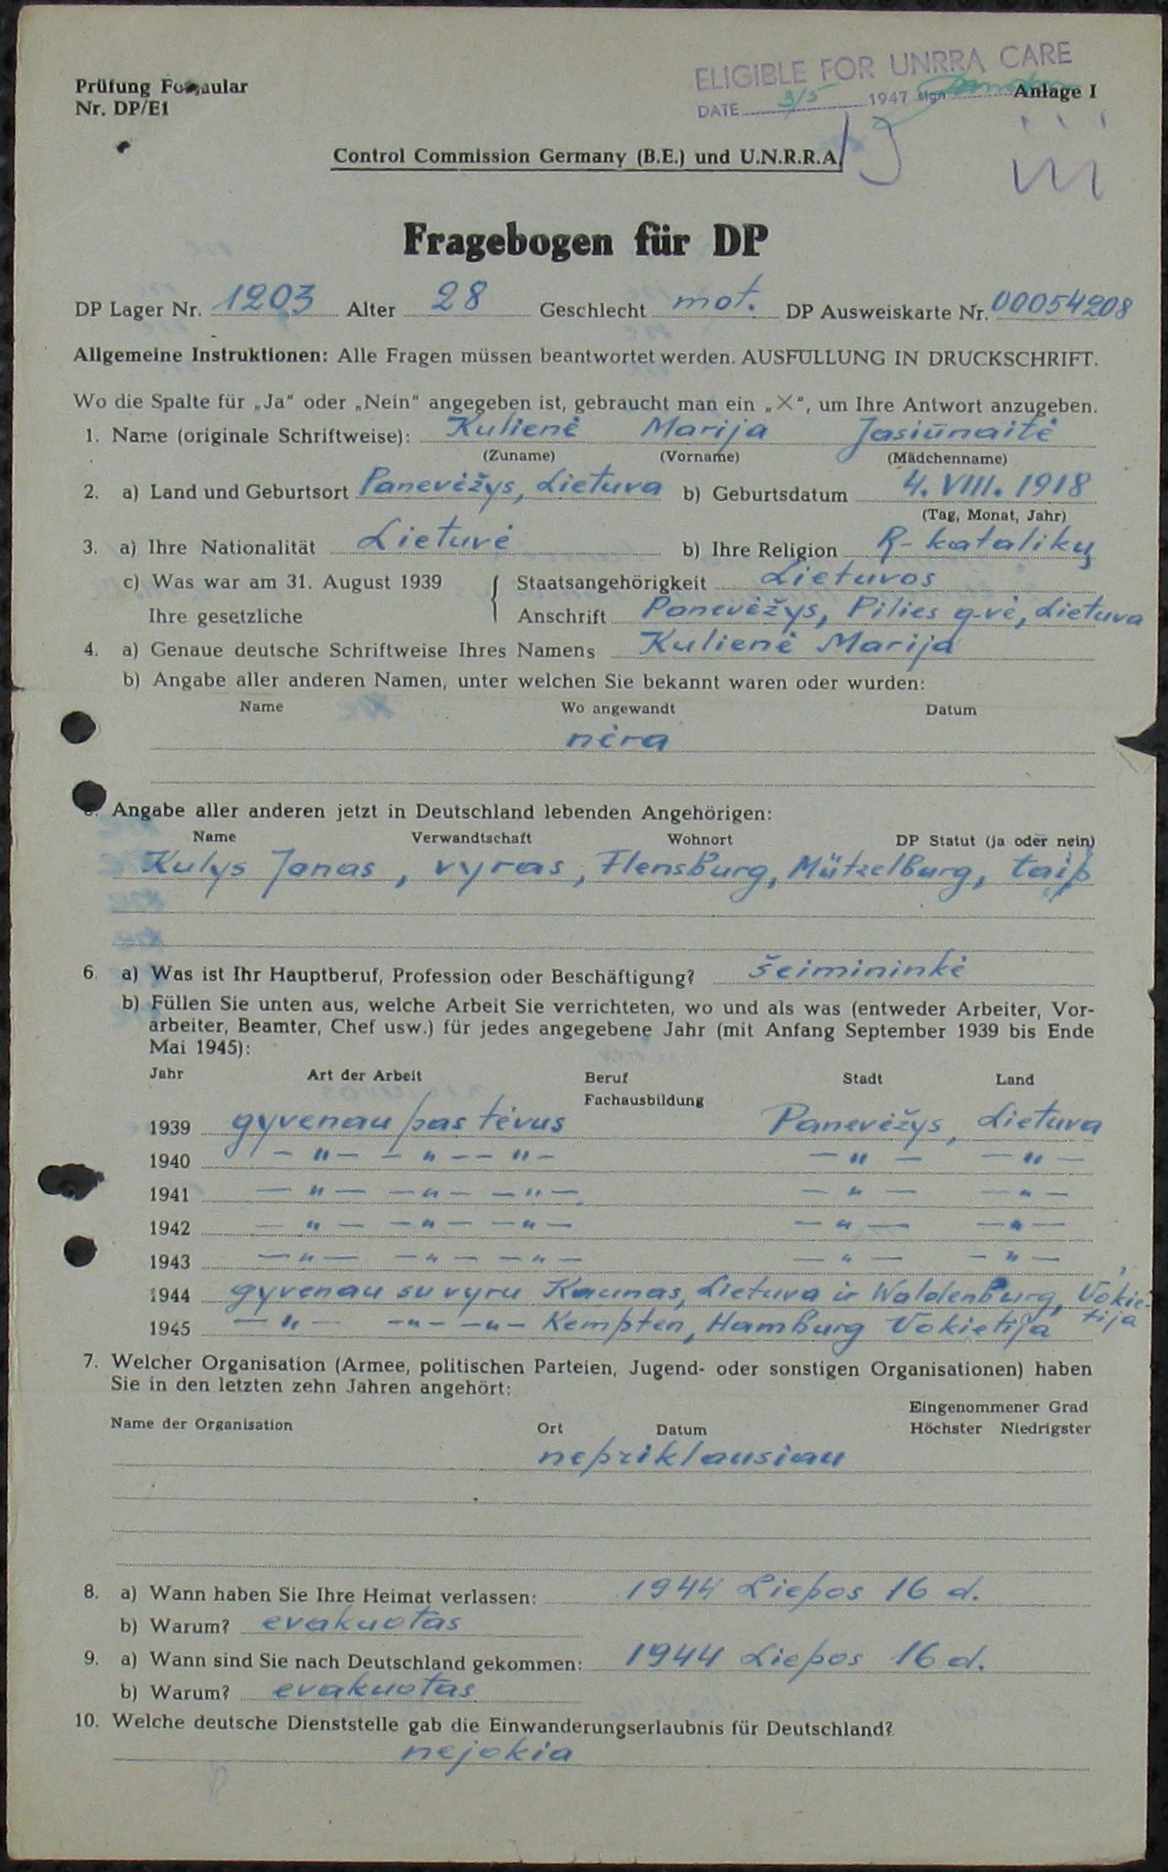 ELIGIBLE FOR UNRRA CARE
Prüfung Formular
DATE 3/5 1947 sign Anlage I
Nr. DP/E1
Control Commission Germany (B.E.) und U.N.R.R.A.
Fragebogen für DP
DP Lager Nr. 1203 Alter 28 Geschlecht mot. DP Ausweiskarte Nr. 00054208
Allgemeine Instruktionen: Alle Fragen müssen beantwortet werden. AUSFÜLLUNG IN DRUCKSCHRIFT.
Wo die Spalte für „Ja“ oder „Nein“ angegeben ist, gebraucht man ein „X“, um Ihre Antwort anzugeben.
1. Name (originale Schriftweise): Kulienė Marija Jasiūnaitė
(Zuname) (Vorname) (Mädchenname)
2. a) Land und Geburtsort Panevėžys, Lietuva b) Geburtsdatum 4. VIII. 1918
(Tag, Monat, Jahr)
3. a) Ihre Nationalität Lietuvė b) Ihre Religion R-katalikų
c) Was war am 31. August 1939 Staatsangehörigkeit Lietuvos
Ihre gesetzliche Anschrift Panevėžys, Pilies g-vė, Lietuva
4. a) Genaue deutsche Schriftweise Ihres Namens Kulienė Marija
b) Angabe aller anderen Namen, unter welchen Sie bekannt waren oder wurden:
Name Wo angewandt Datum
nėra
Angabe aller anderen jetzt in Deutschland lebenden Angehörigen:
Name Verwandtschaft Wohnort DP Statut (ja oder nein)
Kulys Jonas, vyras, Flensburg, Mützelburg, taip
6. a) Was ist Ihr Hauptberuf, Profession oder Beschäftigung? šeimininkė
b) Füllen Sie unten aus, welche Arbeit Sie verrichteten, wo und als was (entweder Arbeiter, Vor-
arbeiter, Beamter, Chef usw.) für jedes angegebene Jahr (mit Anfang September 1939 bis Ende
Mai 1945):
Jahr Art der Arbeit Beruf Stadt Land
Fachausbildung
1939 gyvenau pas tėvus Panevėžys, Lietuva
1940 – " – – " – – " – – " – – " –
1941 – " – – " – – " – – " – – " –
1942 – " – – " – – " – – " – – " –
1943 – " – – " – – " – – " – – " –
1944 gyvenau su vyru Kaunas, Lietuva ir Waldenburg, Vokie-
tija
1945 – " – – " – – " – Kempten, Hamburg Vokietija
7. Welcher Organisation (Armee, politischen Parteien, Jugend- oder sonstigen Organisationen) haben
Sie in den letzten zehn Jahren angehört:
Eingenommener Grad
Name der Organisation Ort Datum Höchster Niedrigster
nepriklausiau
8. a) Wann haben Sie Ihre Heimat verlassen: 1944 Liepos 16 d.
b) Warum? evakuotas
9. a) Wann sind Sie nach Deutschland gekommen: 1944 Liepos 16 d.
b) Warum? evakuotas
10. Welche deutsche Dienststelle gab die Einwanderungserlaubnis für Deutschland?
nejokia